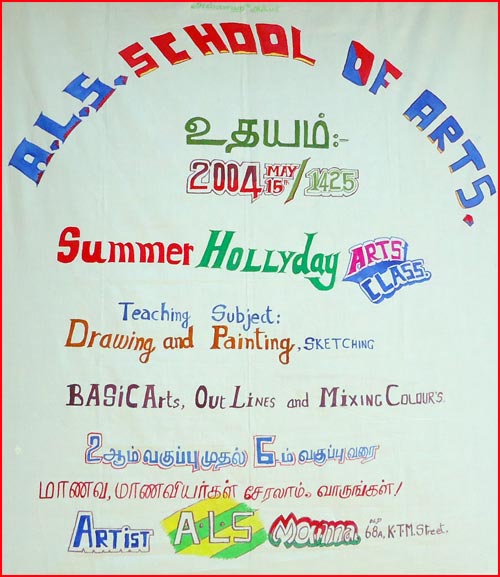 A.L.S. SCHOOL OF ARTS.
உதயம்:-
2004 MAY 15th / 1425
Summer HOLLYday ARTS CLASS.
Teaching Subject:
Drawing and Painting, SKETCHING
BASiC Arts, Out Lines and Mixing Colour's.
2ஆம் வகுப்பு முதல் 6ம் வகுப்பு வரை
மாணவ, மாணவியர்கள் சேரலாம். வாருங்கள்!
Artist A.L.S 68A, K.T.M. Street.